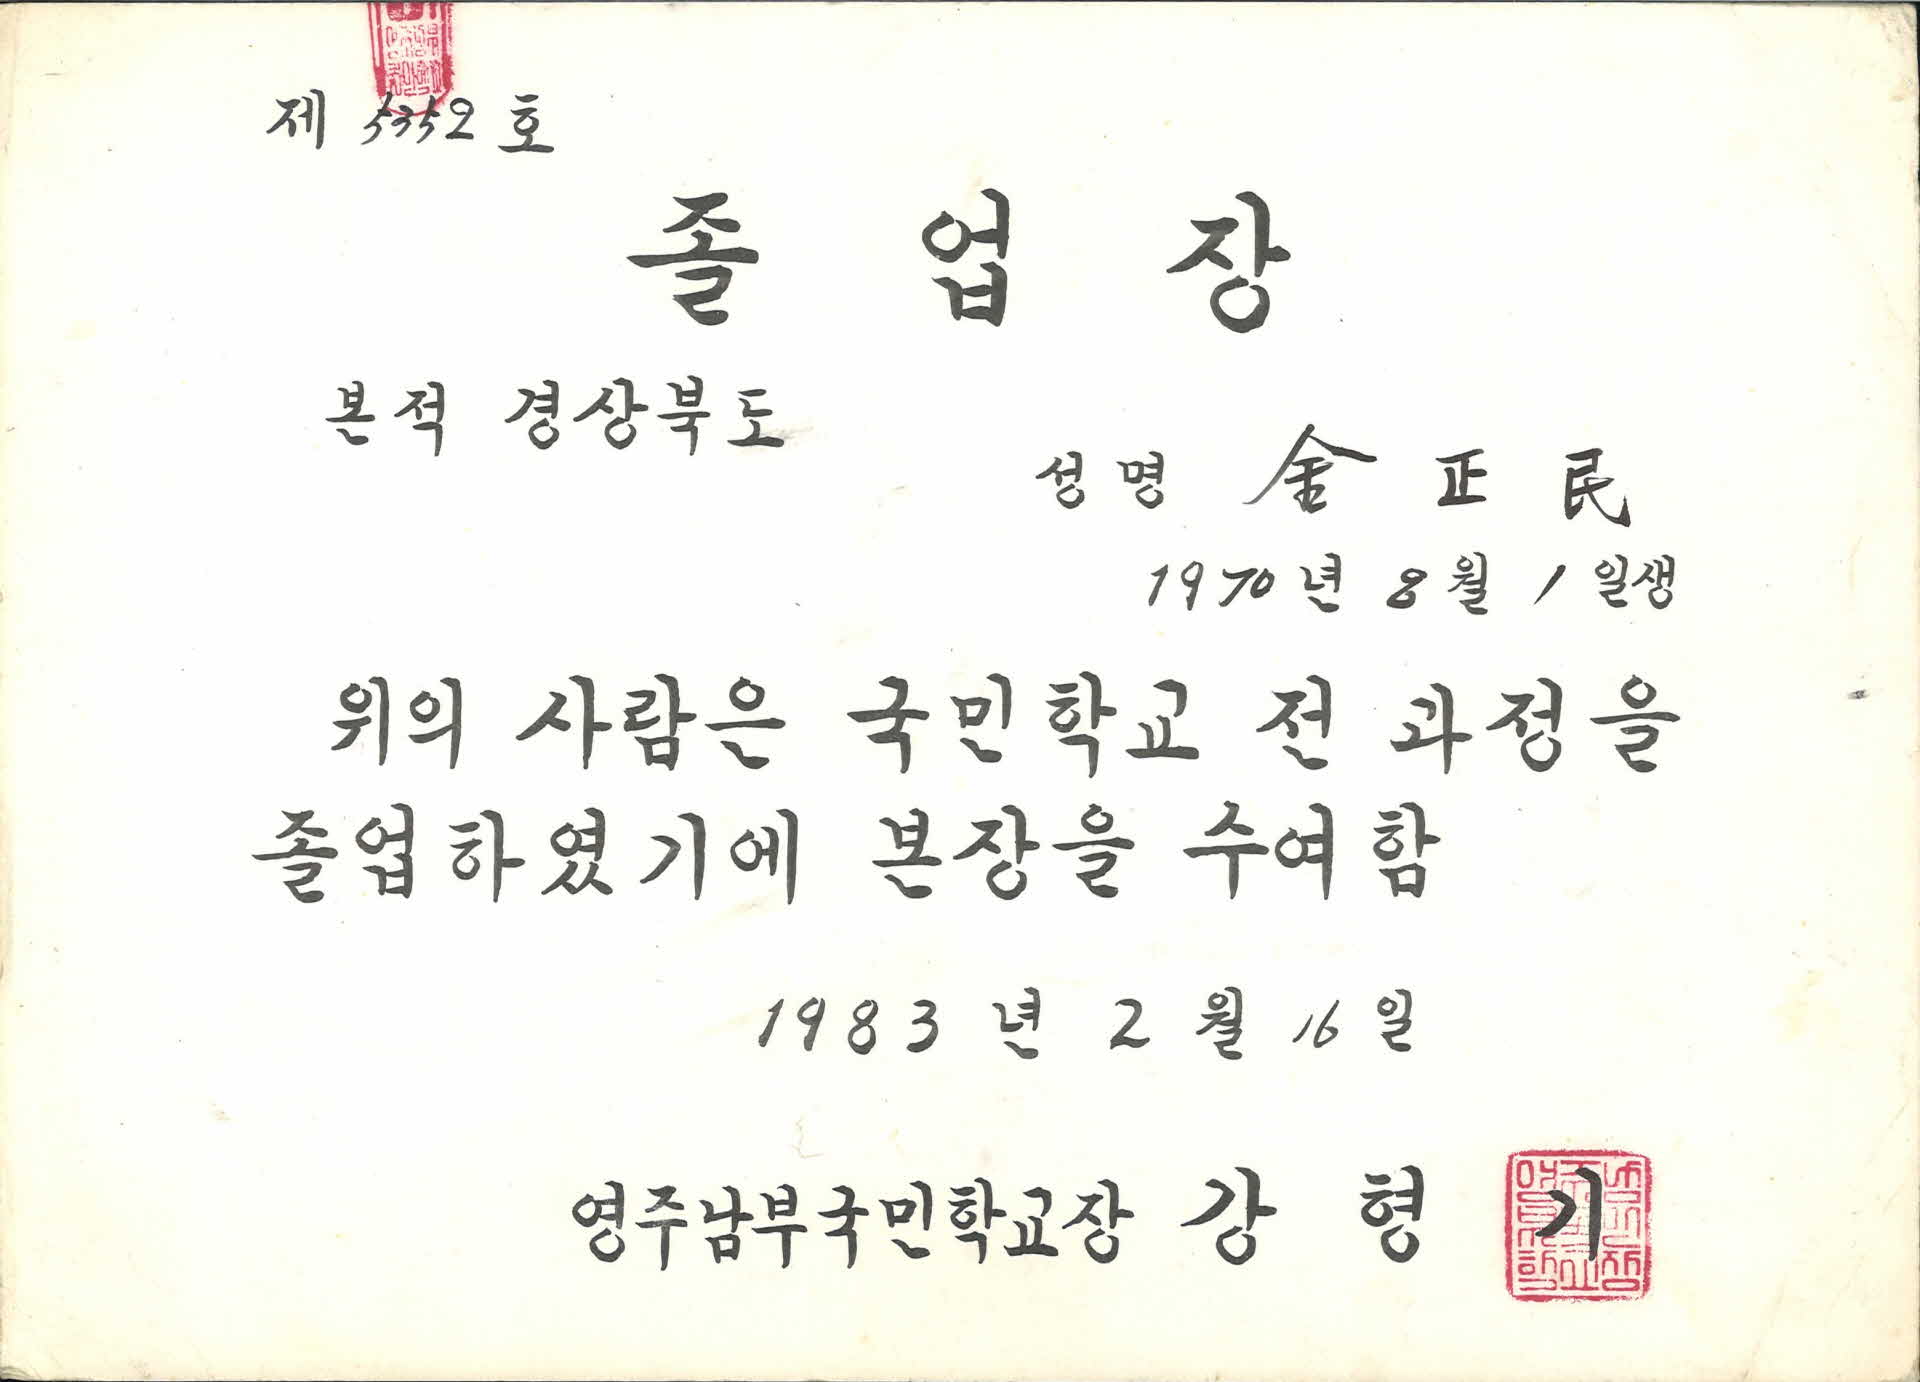 제 5352 호
졸 업 장
본적 경상북도
성명 金 正 民
1970년 8월 1일생
위의 사람은 국민학교 전 과정을
졸업하였기에 본장을 수여함
1983년 2월 16일
영주남부국민학교장 강 형 기